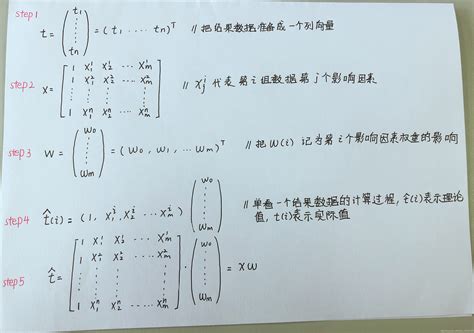 step1
t = (t₁ ⋮ tₙ) = (t₁ ···· tₙ)ᵀ // 把结果数据准备成一个列向量
step2 X = [1 X₁¹ X₂¹ ··· Xₘ¹
1 X₁² X₂² ··· Xₘ²
⋮ ⋮ ⋮ ⋮
1 X₁ⁿ X₂ⁿ ··· Xₘⁿ] // Xⱼⁱ 代表第i组数据第j个影响因素
step3 W = (w₀ ⋮ wₘ) = (w₀, w₁, ··· wₘ)ᵀ // 把W(i)记为第i个影响因素权重的影响
step4 t̂(i) = (1, X₁ⁱ, X₂ⁱ ··· Xₘⁱ) (w₀ ⋮ wₘ) // 单看一个结果数据的计算过程, t̂(i)表示理论
值, t(i)表示实际值
step5 t̂ = [1 X₁¹ X₂¹ ··· Xₘ¹
1 X₁² X₂² ··· Xₘ²
⋮ ⋮ ⋮ ⋮
1 X₁ⁿ X₂ⁿ ··· Xₘⁿ] · (w₀ ⋮ wₘ) = XW